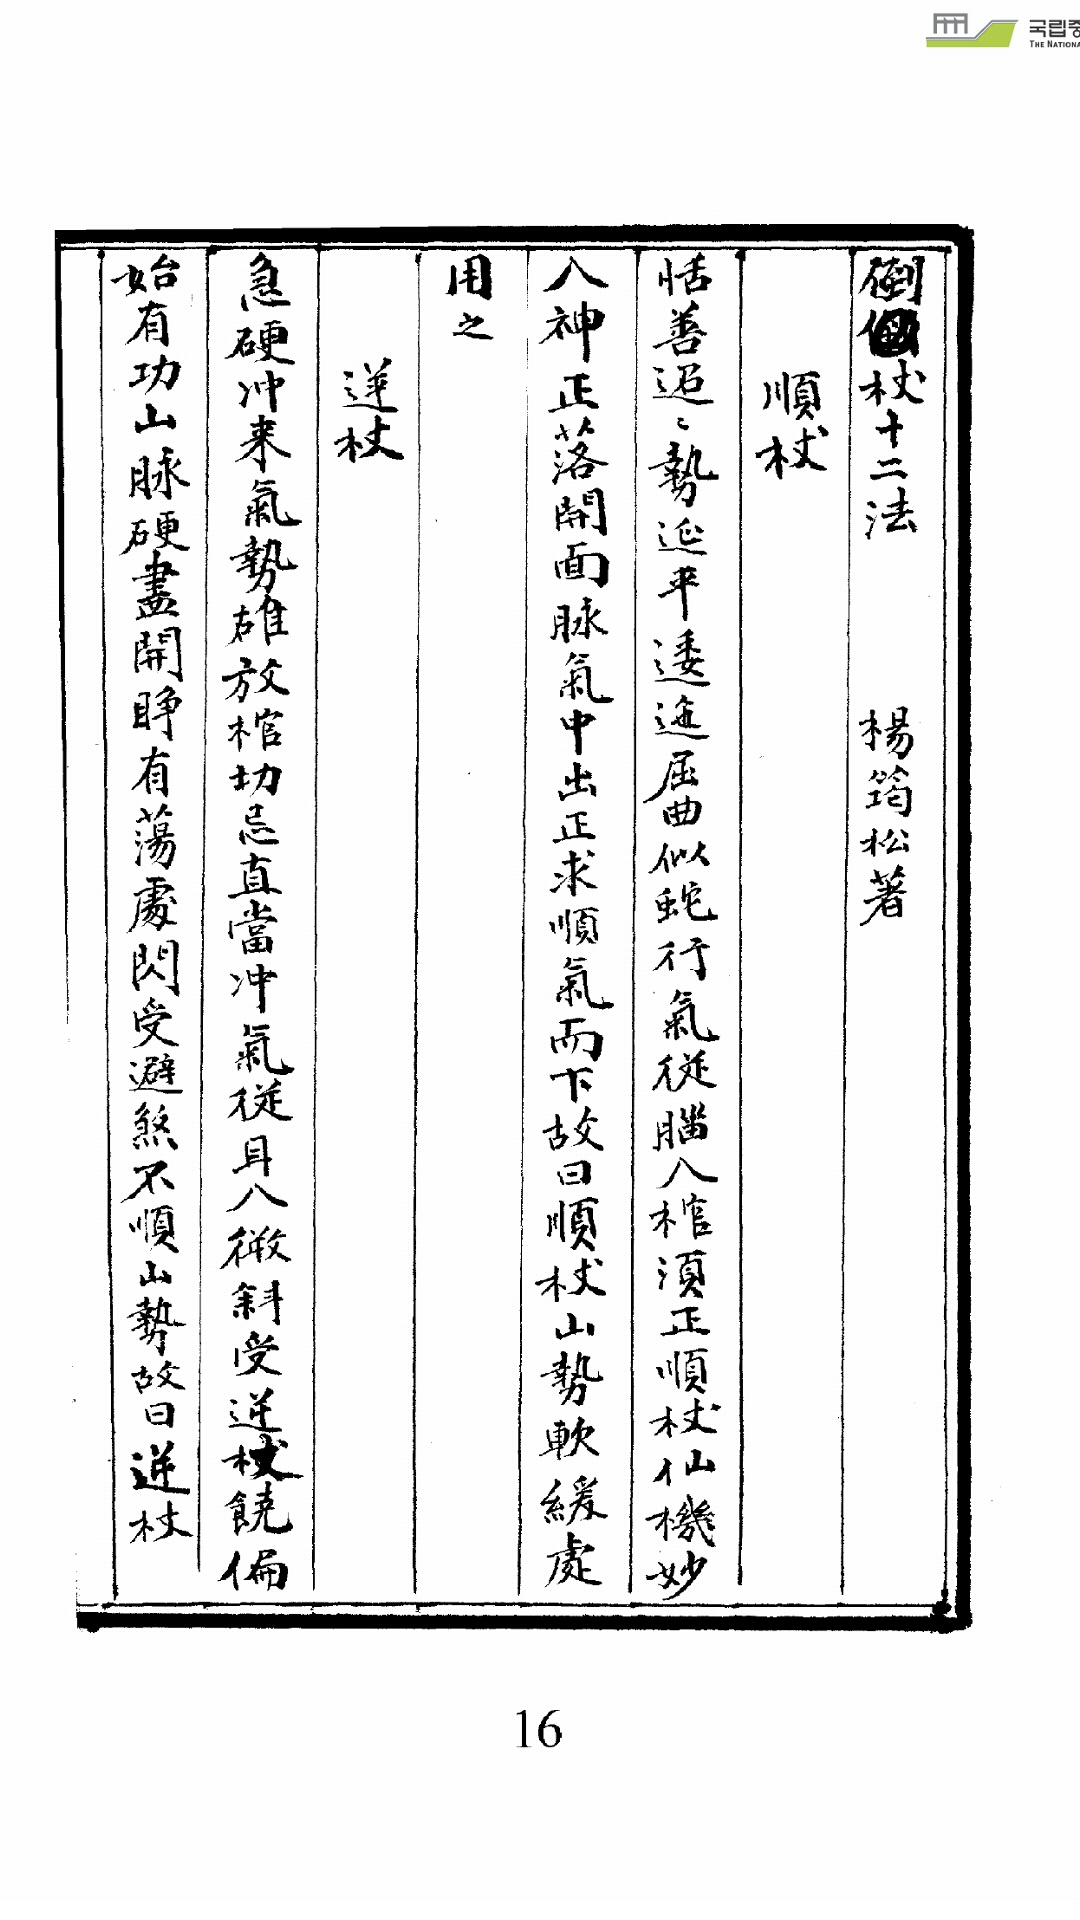 국립중
THE NATIONA
倒杖十二法 楊筠松著
順杖
恬善迢〻勢延平逶迤屈曲似蛇行氣從腦入棺須正順杖仙機妙
入神正落開面脉氣中出正求順氣而下故曰順杖山勢軟緩處
用之
逆杖
急硬冲来氣勢雄放棺切忌直當冲氣從耳入微斜受逆杖饒偏
始有功山脉硬盡開睁有蕩處閃受避煞不順山勢故曰逆杖
16